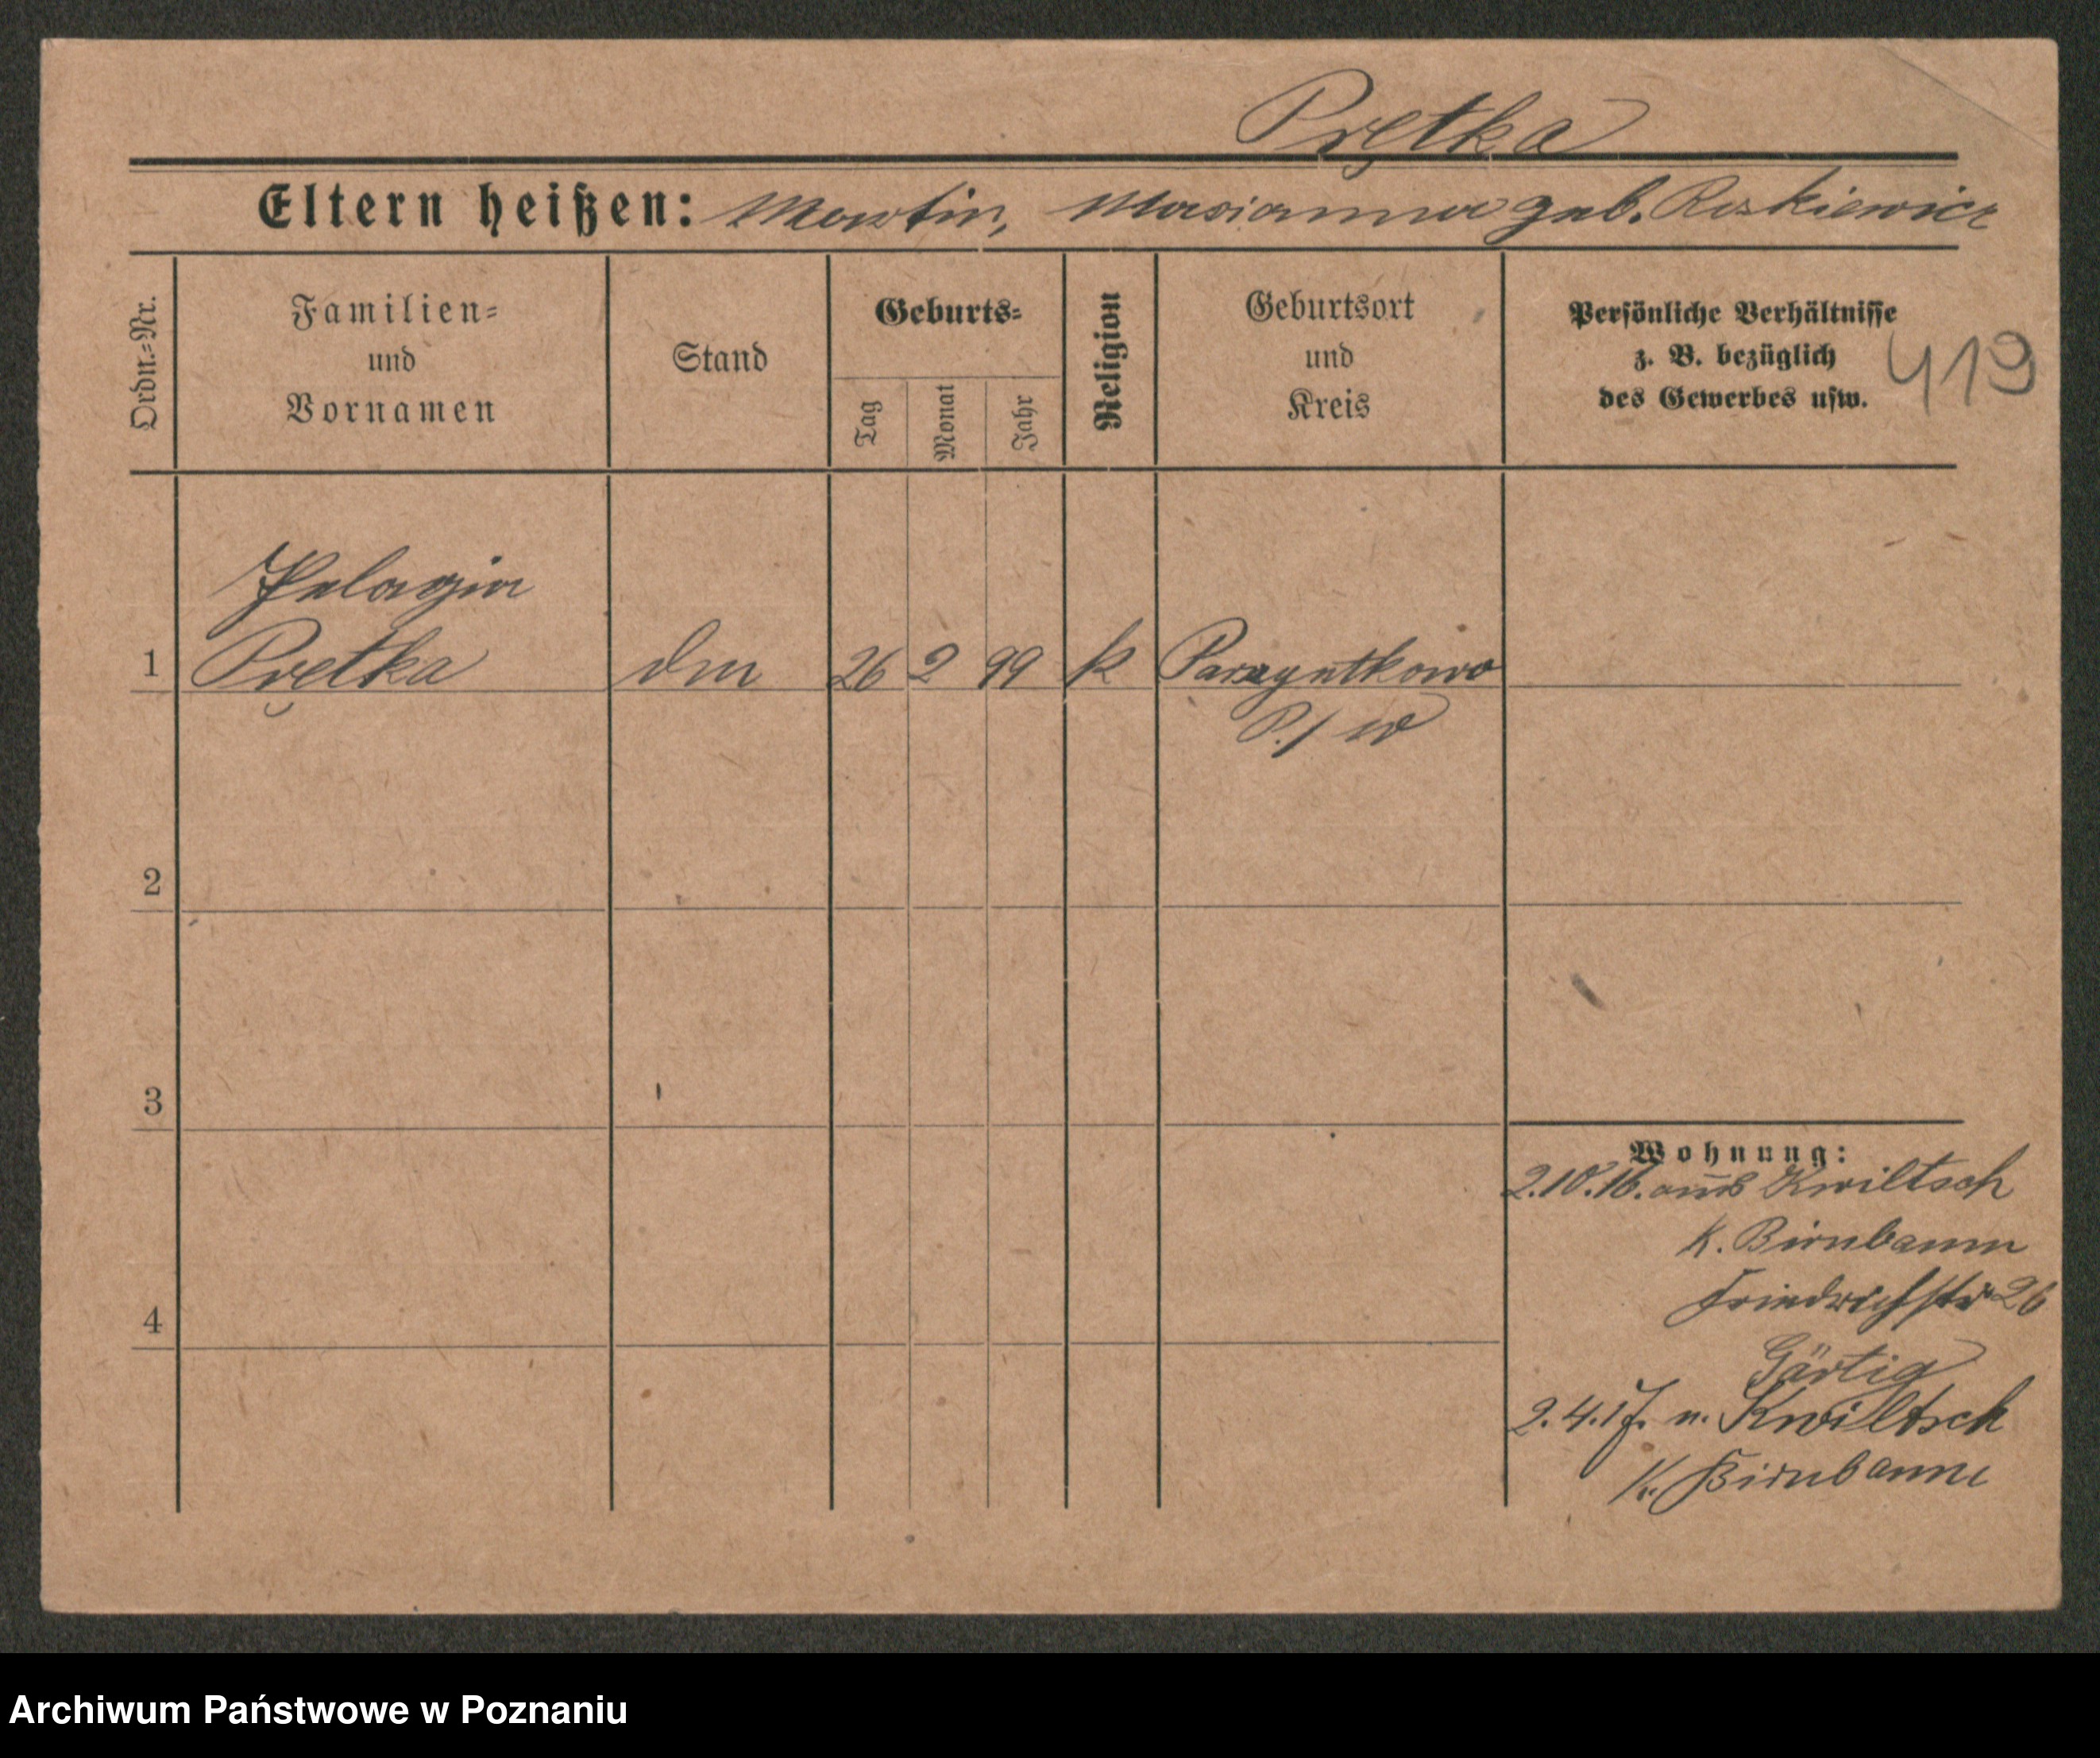 Prętka
Eltern heißen: Martin, Marianna geb. Roszkiewicz
Ordn.-Nr.
Familien-
und
Vornamen
Stand
Geburts-
Tag
Monat
Jahr
Religion
Geburtsort
und
Kreis
Persönliche Verhältnisse
z. B. bezüglich
des Gewerbes usw.
419
Pelagia
1 Prętka dm 26 2 99 k
P./W
2
3
4
Wohnung:
2.10.16. aus Kwiltsch
K. Birnbaum
Friedrichstr 26
Gärtig
2.4.17. n. Kwiltsch
K. Birnbaum
Archiwum Państwowe w Poznaniu